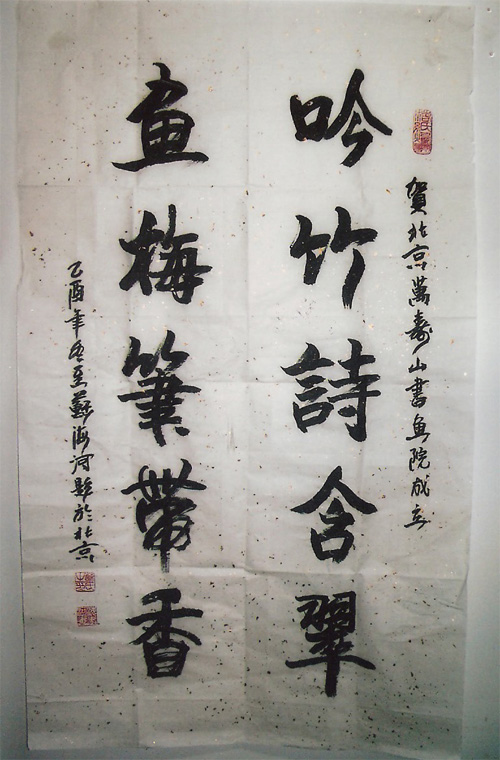 賀北京萬壽山書画院成立
吟竹詩含翠
画梅筆帶香
乙酉年冬至蘇海河題於北京